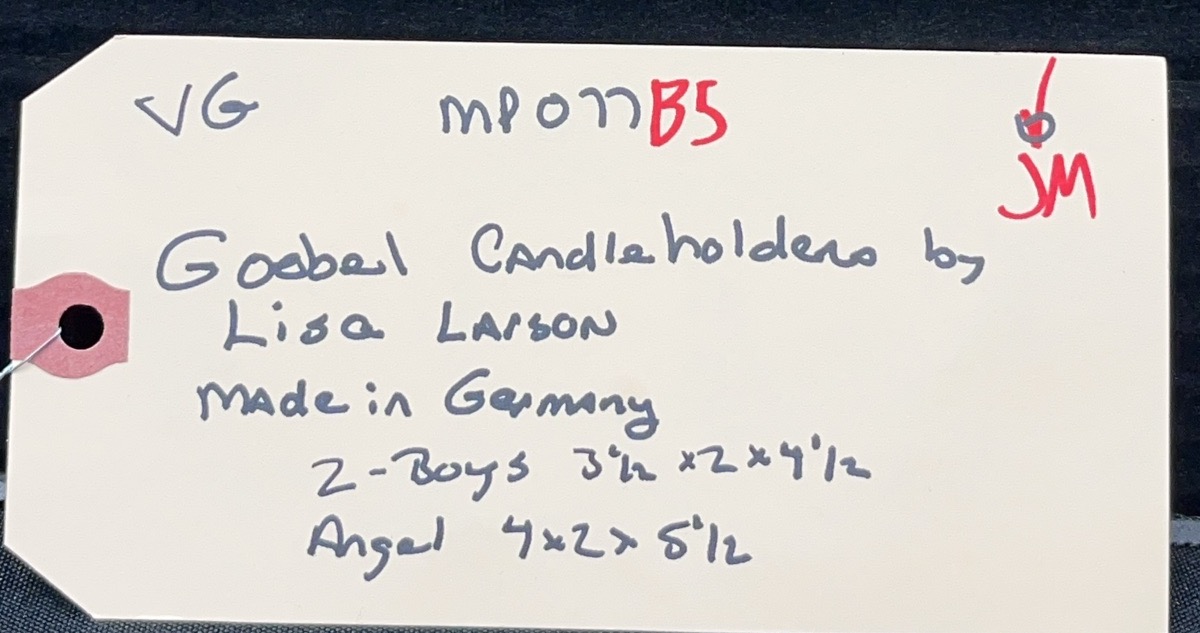 VG MP077B5
JM
Goebel Candleholders by
Lisa Larson
Made in Germany
2-Boys 3 1/2 x 2 x 4 1/2
Angel 4 x 2 x 5 1/2